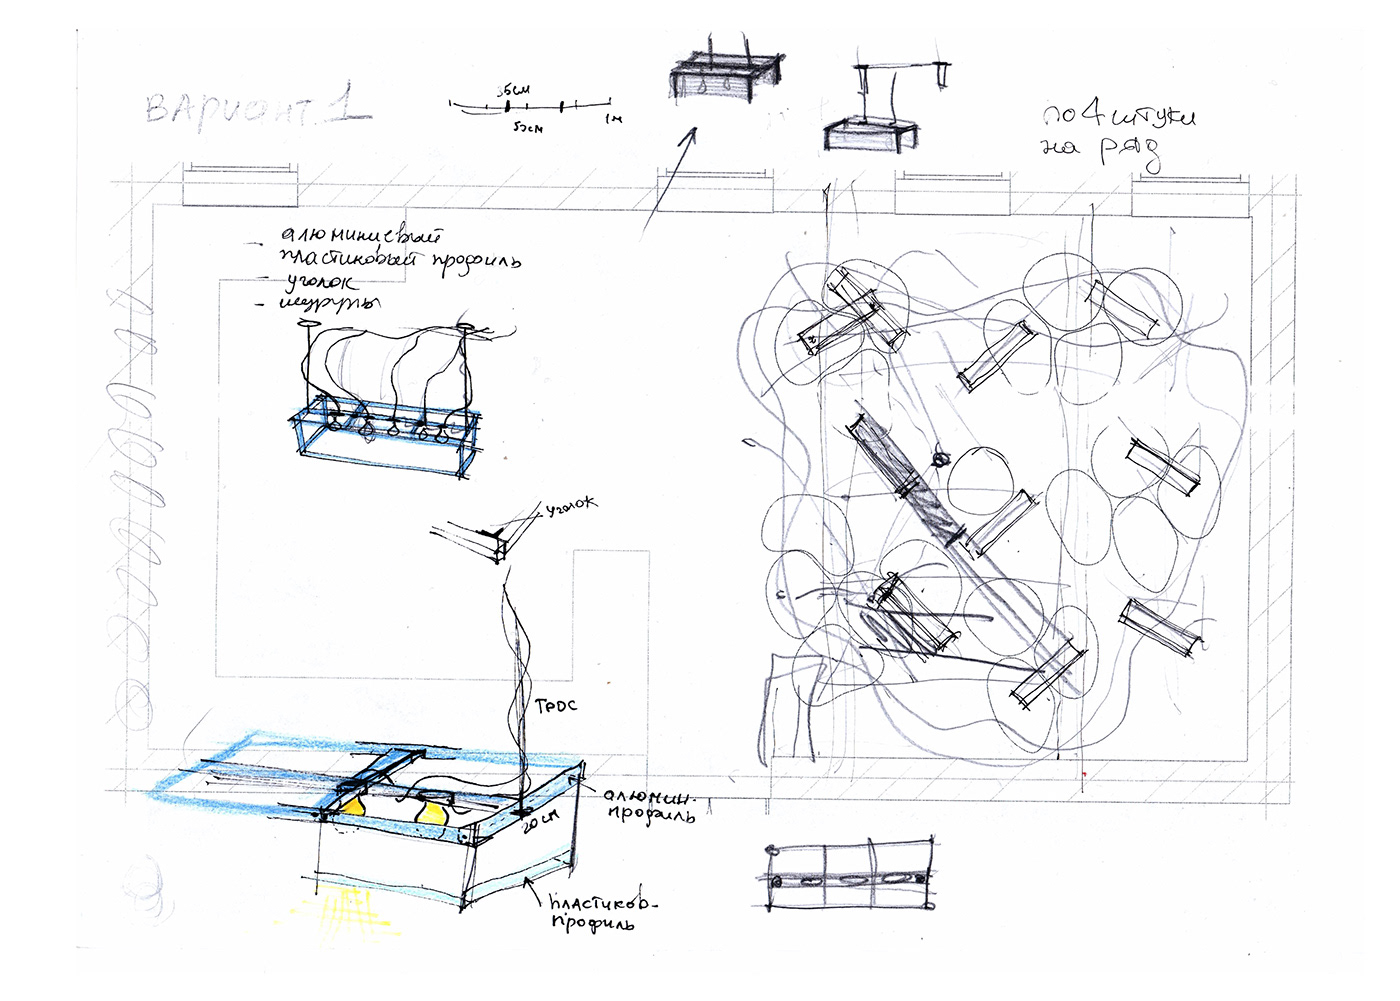 ВАРИАНТ 1
35см
50см
1м
по 4 штуки
на ряд
- алюминиевый
пластиковый профиль
- уголок
- шурупы
уголок
ТРОС
алюмин.
профиль
20 см
пластиков-
профиль